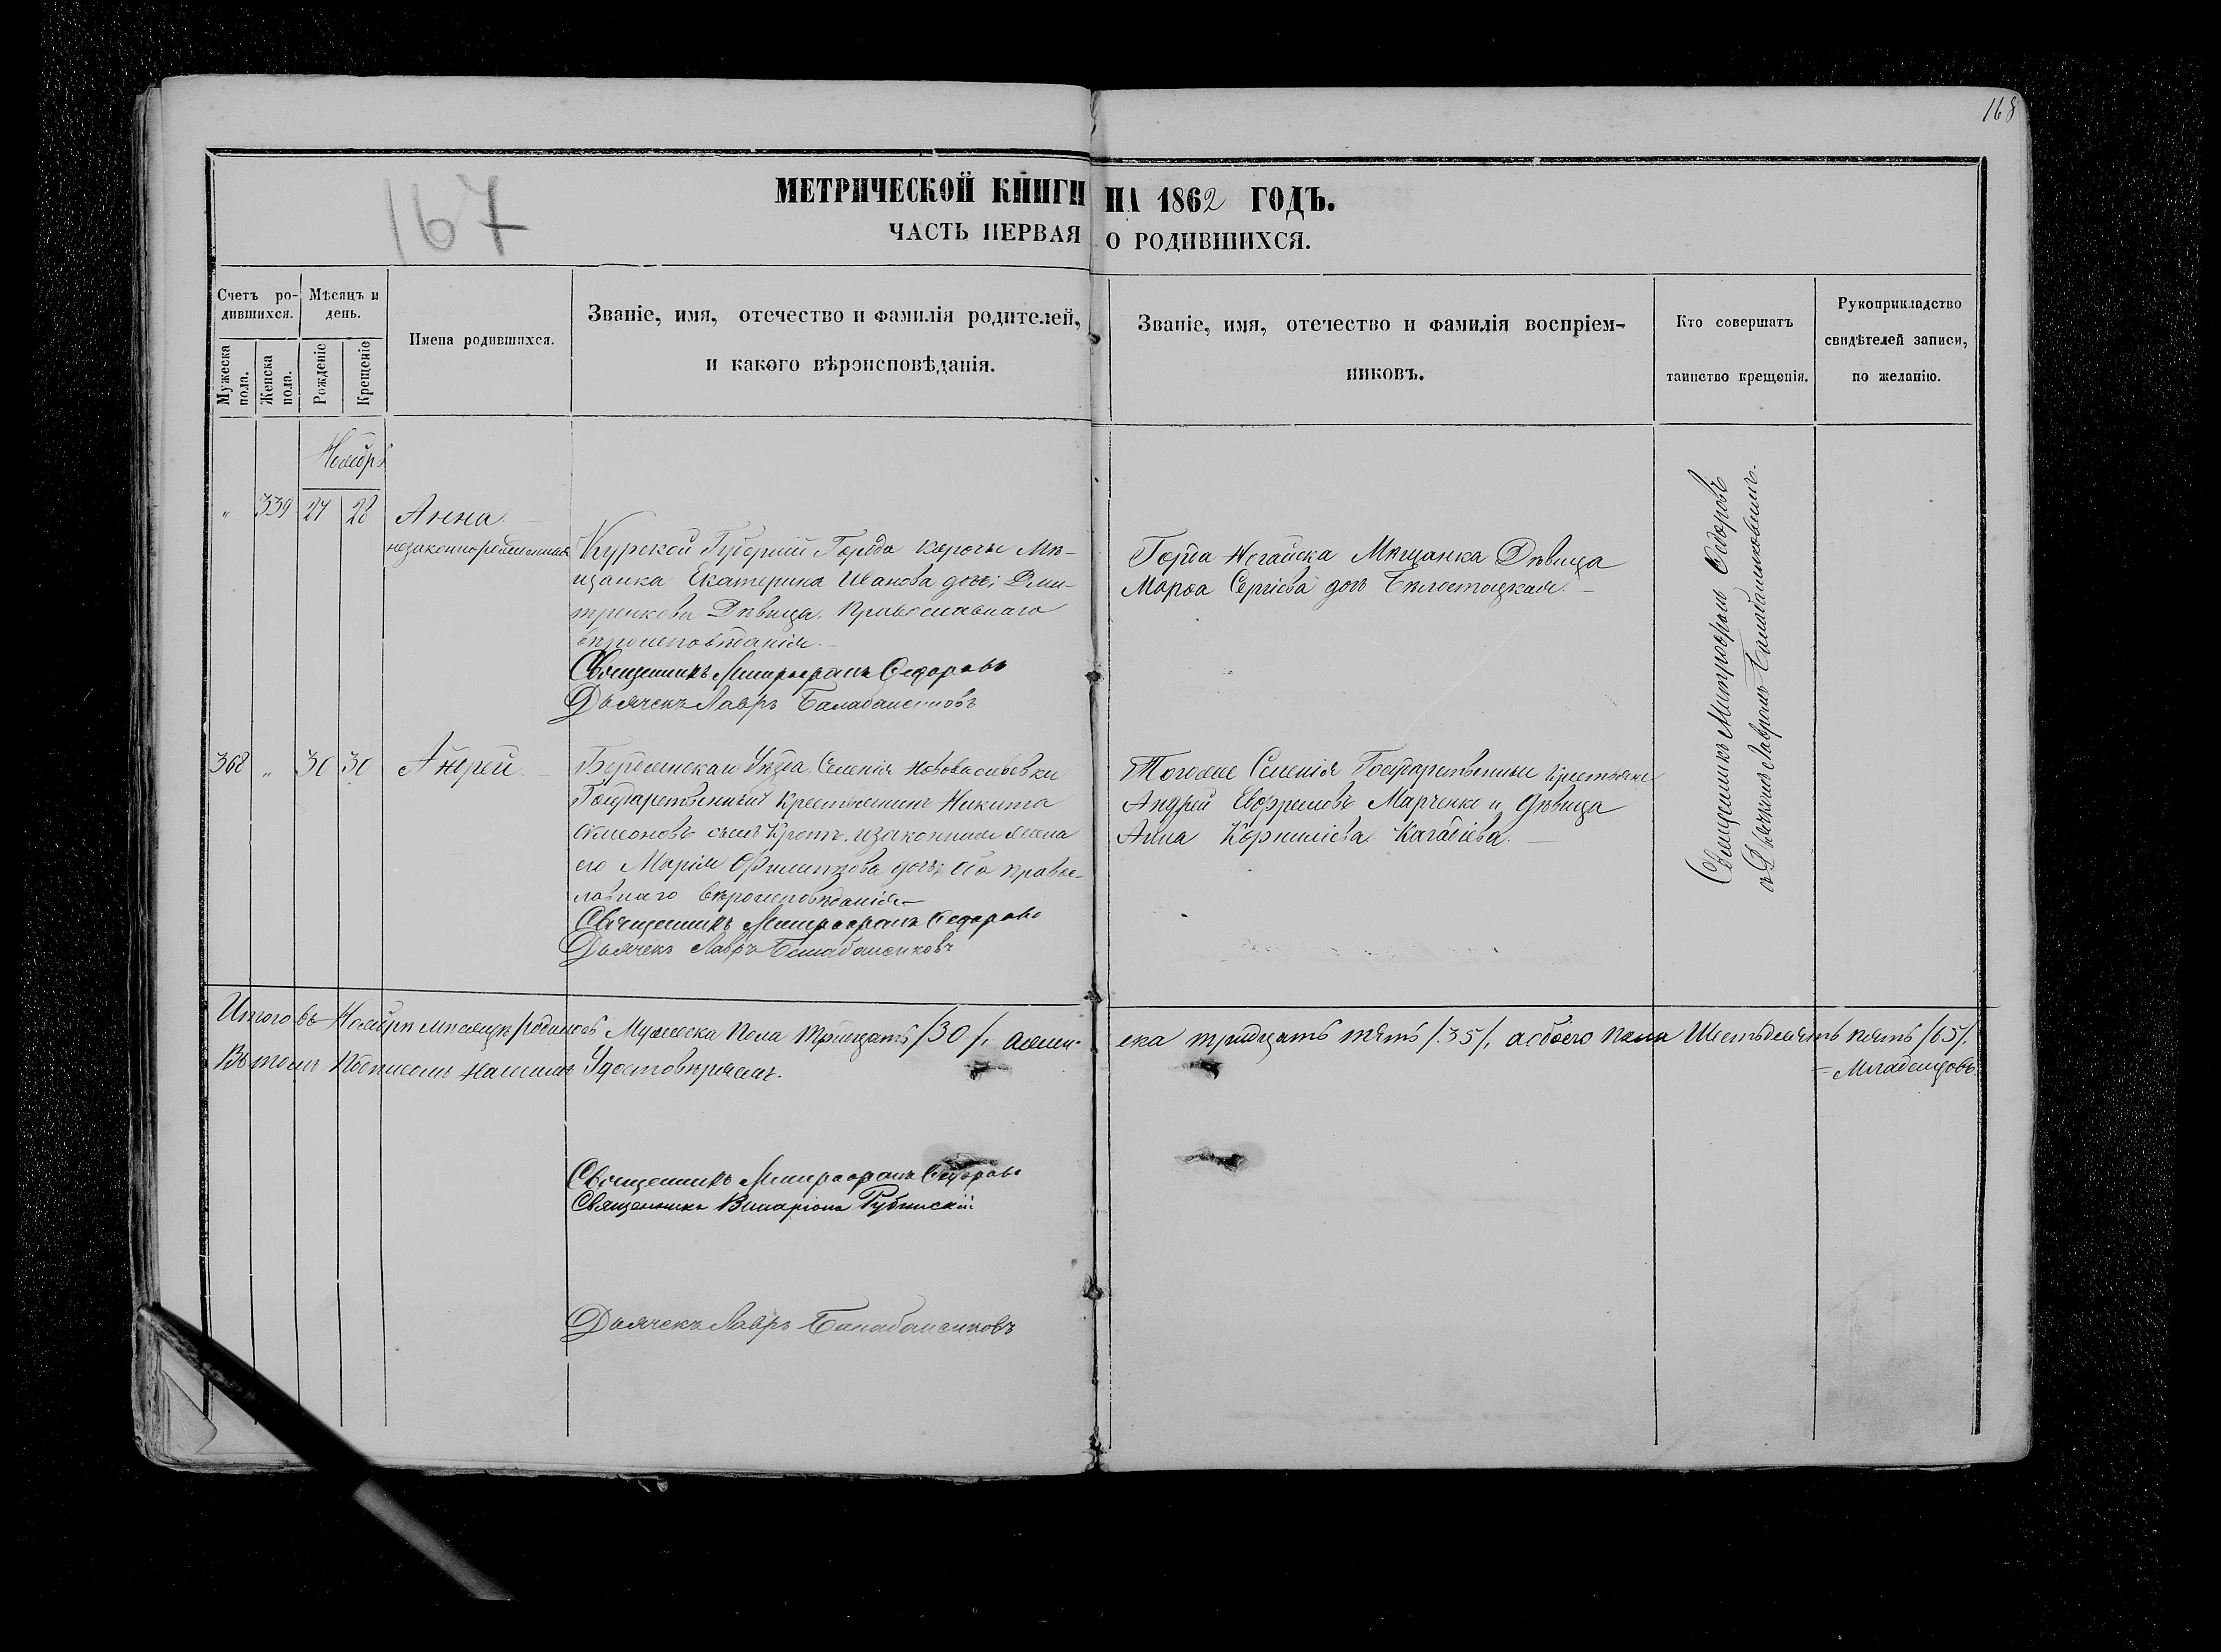 168
167
МЕТРИЧЕСКОЙ КНИГИ НА 1862 ГОДЪ.
ЧАСТЬ ПЕРВАЯ О РОДИВШИХСЯ.
Счетъ ро-
дившихся.
Мужеска
пола.
Женска
пола.
Мѣсяцъ и
день.
Рожденіе
Крещеніе
Имена родившихся.
Званіе, имя, отечество и фамилія родителей,
и какого вѣроисповѣданія.
Званіе, имя, отечество и фамилія воспріем-
никовъ.
Кто совершатъ
таинство крещенія.
Рукоприкладство
свидѣтелей записи,
по желанію.
Ноябрь
" 339 27 28 Анна.
незаконнорожденная
Курской Губерніи Города Корочи Мѣ-
щанка Екатерина Иванова дочь Дми-
тренкова Дѣвица. Православнаго
вѣроисповѣданія.
Священникъ Митрофанъ Федоровъ
Дьячекъ Лавръ Балабаненковъ
Города Ногайска Мѣщанка Дѣвица
Марѳа Сергіева дочь Бѣлостоцкая.
Священникъ Митрофанъ Федоровъ
съ Дьячкомъ Лавромъ Балабаненковымъ.
368 " 30 30 Андрей.
Бердянскаго Уѣзда Селенія Нововасильевки
Государственный Крестьянинъ Никита
сынъ Кротъ, изаконная жена
его Марія дочь; Оба право-
славнаго вѣроисповѣданія
Священникъ Митрофанъ Федоровъ
Дьячекъ Лавръ Балабаненковъ
Тогоже Селенія Государственные Крестьяне
Андрей Ефремовъ Марченко и дѣвица
Анна Корниліева
Итого въ Ноябрѣ мѣсяцѣ родилось Мужеска Пола тридцать /30/, аженс-
ка тридцать пять /35/, а обоего пола Шестьдесятъ пять /65/.
Младенцовъ.
Въ томъ Подписомъ нашимъ Удостовѣряемъ.
Священникъ Митрофанъ Федоровъ
Священникъ Иларіонъ
Дьячекъ Лавръ Балабаненковъ